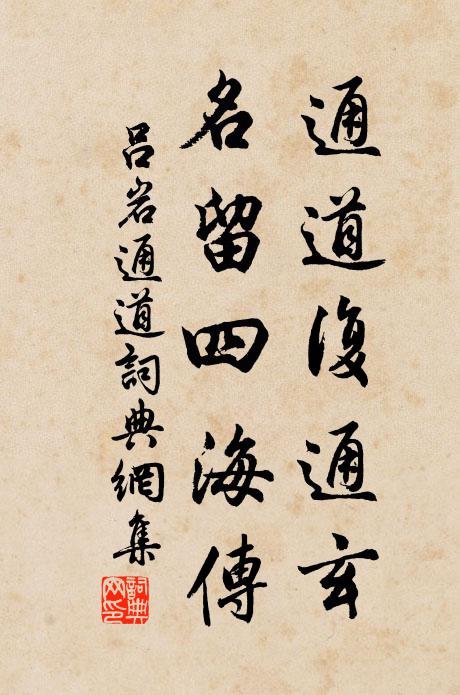 通道復通玄
名留四海傳
呂岩通道詞典網集
詞典網印